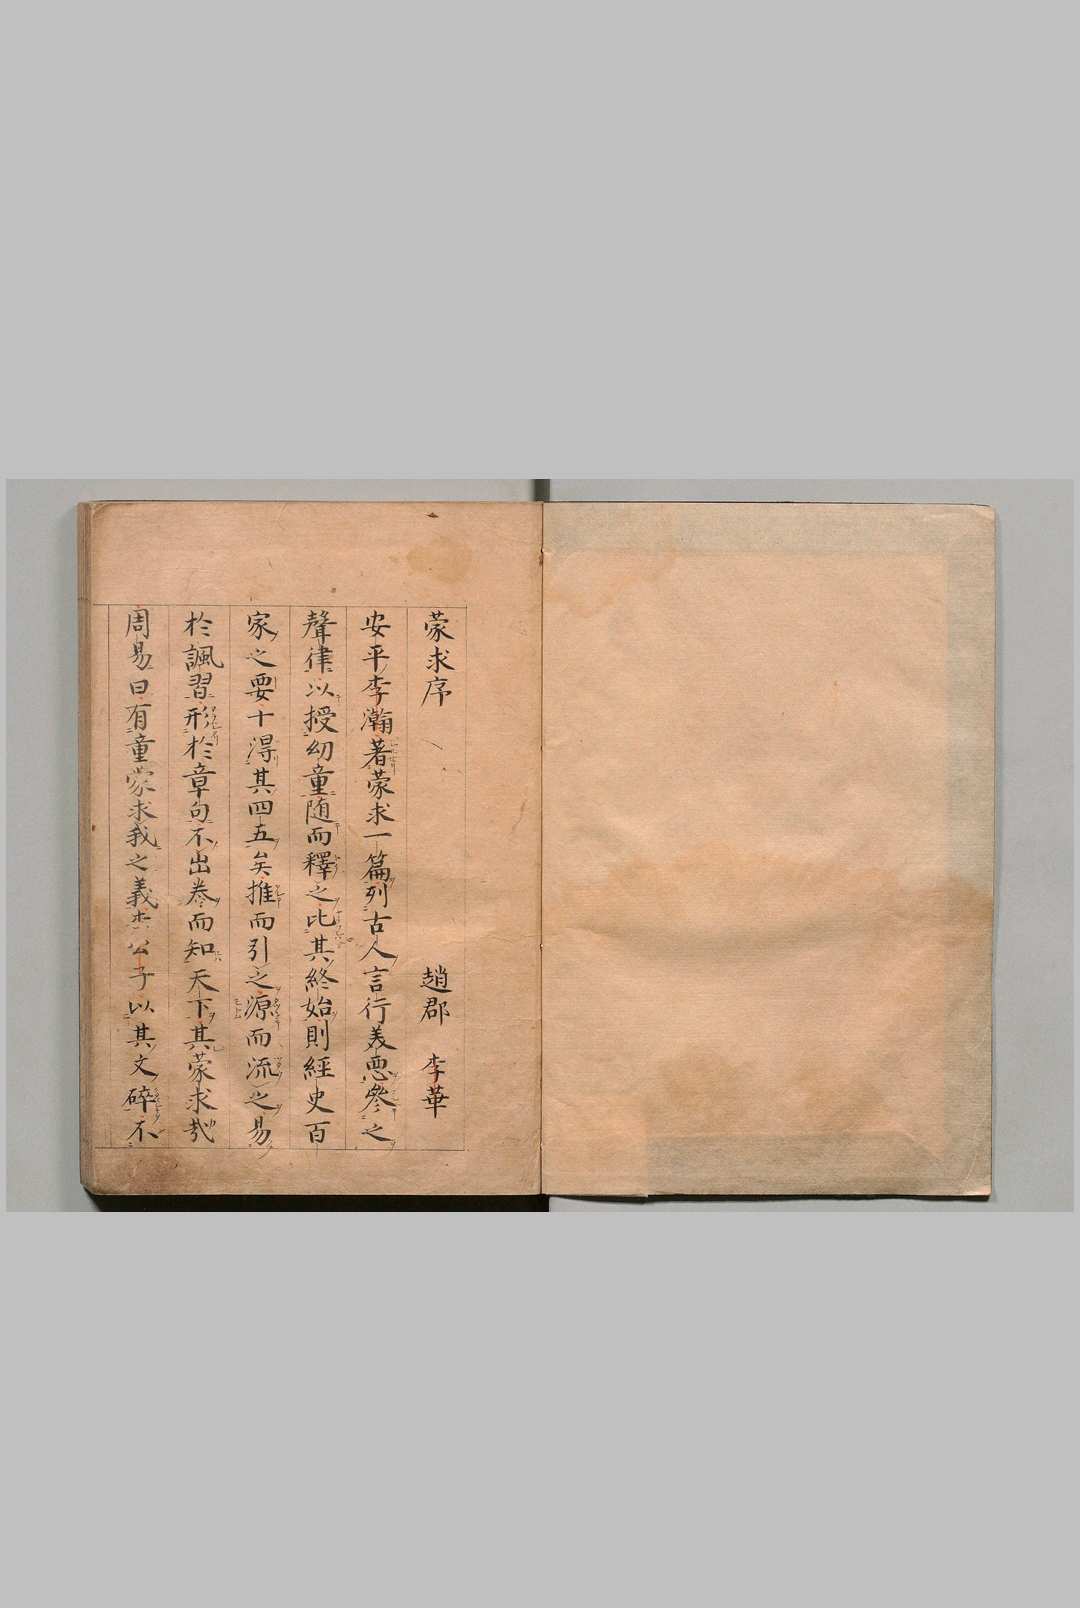 蒙求序　趙郡　李華
安平李瀚著蒙求一篇列古人言行美惡參之
聲律以授幼童随而釋之比其終始則經史百
家之要十得其四五矣推而引之源而流之易
於諷習形於章句不出卷而知天下其蒙求哉
周易曰有童蒙求我之義李公子以其文碎不